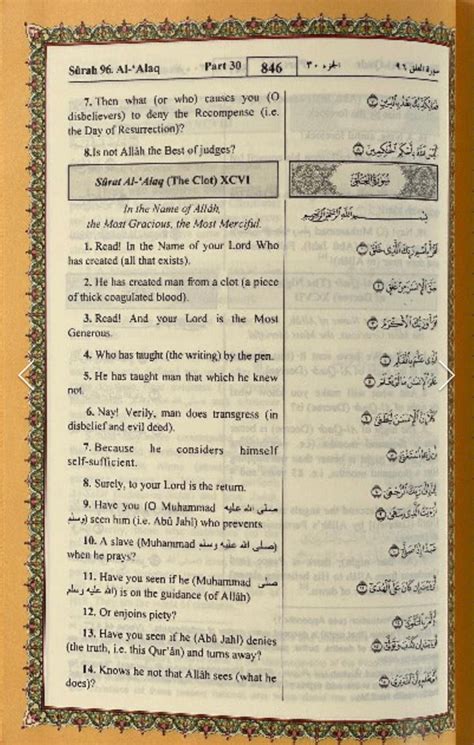 Sûrah 96. Al-‘Alaq
Part 30
846
الجزء ٣٠
سورة العلق ٩٦
7. Then what (or who) causes you (O
disbelievers) to deny the Recompense (i.e.
the Day of Resurrection)?
8.Is not Allâh the Best of judges?
Sûrat Al-‘Alaq (The Clot) XCVI
In the Name of Allâh,
the Most Gracious, the Most Merciful.
1. Read! In the Name of your Lord Who
has created (all that exists).
2. He has created man from a clot (a piece
of thick coagulated blood).
3. Read! And your Lord is the Most
Generous.
4. Who has taught (the writing) by the pen.
5. He has taught man that which he knew
not.
6. Nay! Verily, man does transgress (in
disbelief and evil deed).
7. Because he considers himself
self-sufficient.
8. Surely, to your Lord is the return.
9. Have you (O Muhammad صلى الله عليه
وسلم) seen him (i.e. Abû Jahl) who prevents
10. A slave (Muhammad صلى الله عليه وسلم)
when he prays?
11. Have you seen if he (Muhammad صلى
الله عليه وسلم) is on the guidance (of Allâh)
12. Or enjoins piety?
13. Have you seen if he (Abû Jahl) denies
(the truth, i.e. this Qur’ân) and turns away?
14. Knows he not that Allâh sees (what he
does)?
فما يكذبك بعد بالدين ٧
أليس الله بأحكم الحاكمين ٨
سورة العلق
بسم الله الرحمن الرحيم
اقرأ باسم ربك الذي خلق ١
خلق الإنسن من علق ٢
اقرأ وربك الأكرم ٣
الذي علم بالقلم ٤
علم الإنسن ما لم يعلم ٥
كلا إن الإنسن ليطغى ٦
أن رءاه استغنى ٧
إن إلى ربك الرجعى ٨
أرءيت الذي ينهى ٩
عبدا إذا صلى ١٠
أرءيت إن كان على الهدى ١١
أو أمر بالتقوى ١٢
أرءيت إن كذب وتولى ١٣
ألم يعلم بأن الله يرى ١٤